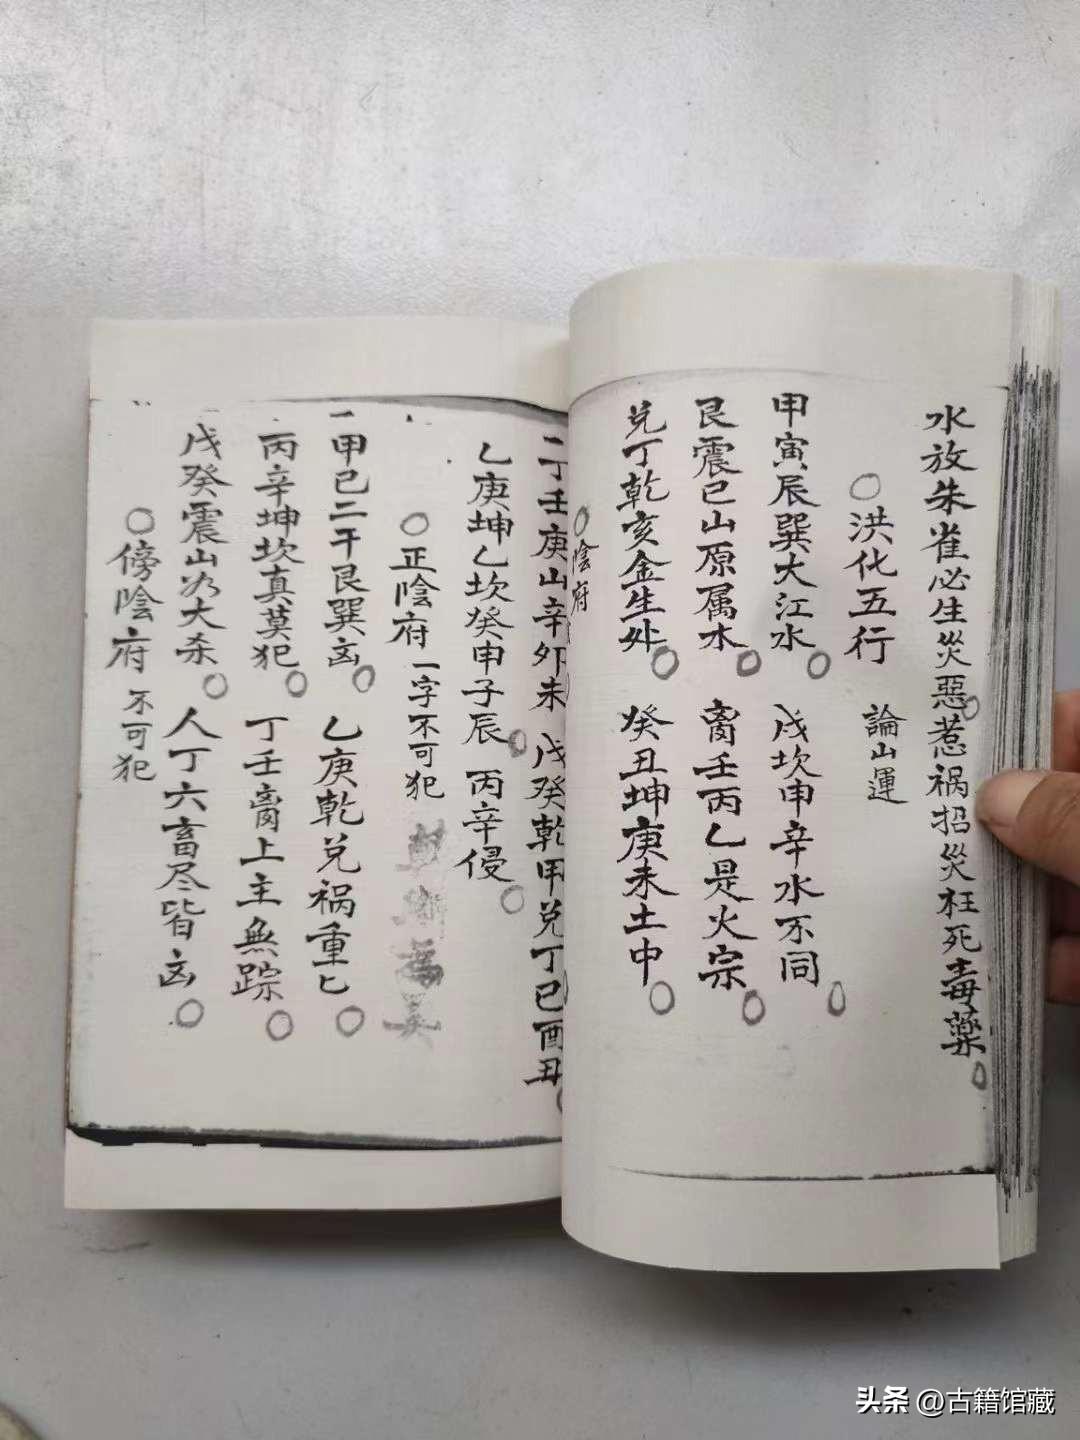 水放朱雀必生災惡惹祸招災枉死毒藥
洪化五行 論山運
甲寅辰巽大江水 戌坎申辛水不同
艮震已山原属木 离壬丙乙是火宗
兑丁乾亥金生处 癸丑坤庚未土中
陰府
二丁壬庚山辛外未 戊癸乾甲兑丁已酉丑
乙庚坤乙坎癸申子辰 丙辛侵
正陰府 一字不可犯
一甲已二干艮巽凶 乙庚乾兑祸重匕
丙辛坤坎真莫犯 丁壬离上主無踪
戊癸震山为大杀 人丁六畜尽皆凶
傍陰府 不可犯
头条 @古籍馆藏